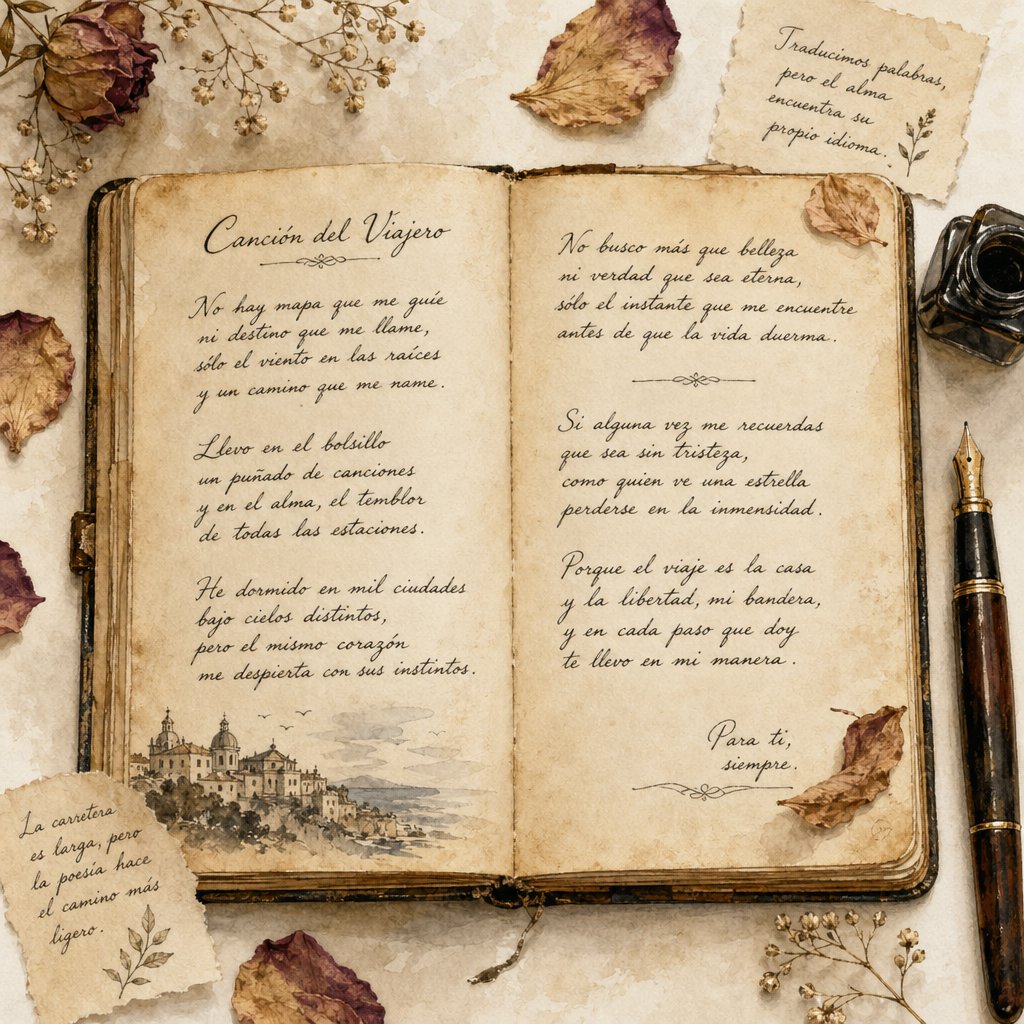 Canción del Viajero
No hay mapa que me guíe
ni destino que me llame,
sólo el viento en las raíces
y un camino que me name.
Llevo en el bolsillo
un puñado de canciones
y en el alma, el temblor
de todas las estaciones.
He dormido en mil ciudades
bajo cielos distintos,
pero el mismo corazón
me despierta con sus instintos.
No busco más que belleza
ni verdad que sea eterna,
sólo el instante que me encuentre
antes de que la vida duerma.
Si alguna vez me recuerdas
que sea sin tristeza,
como quien ve una estrella
perderse en la inmensidad.
Porque el viaje es la casa
y la libertad, mi bandera,
y en cada paso que doy
te llevo en mi manera.
Para ti,
siempre.
Traducimos palabras,
pero el alma
encuentra su
propio idioma.
La carretera
es larga, pero
la poesía hace
el camino más
ligero.